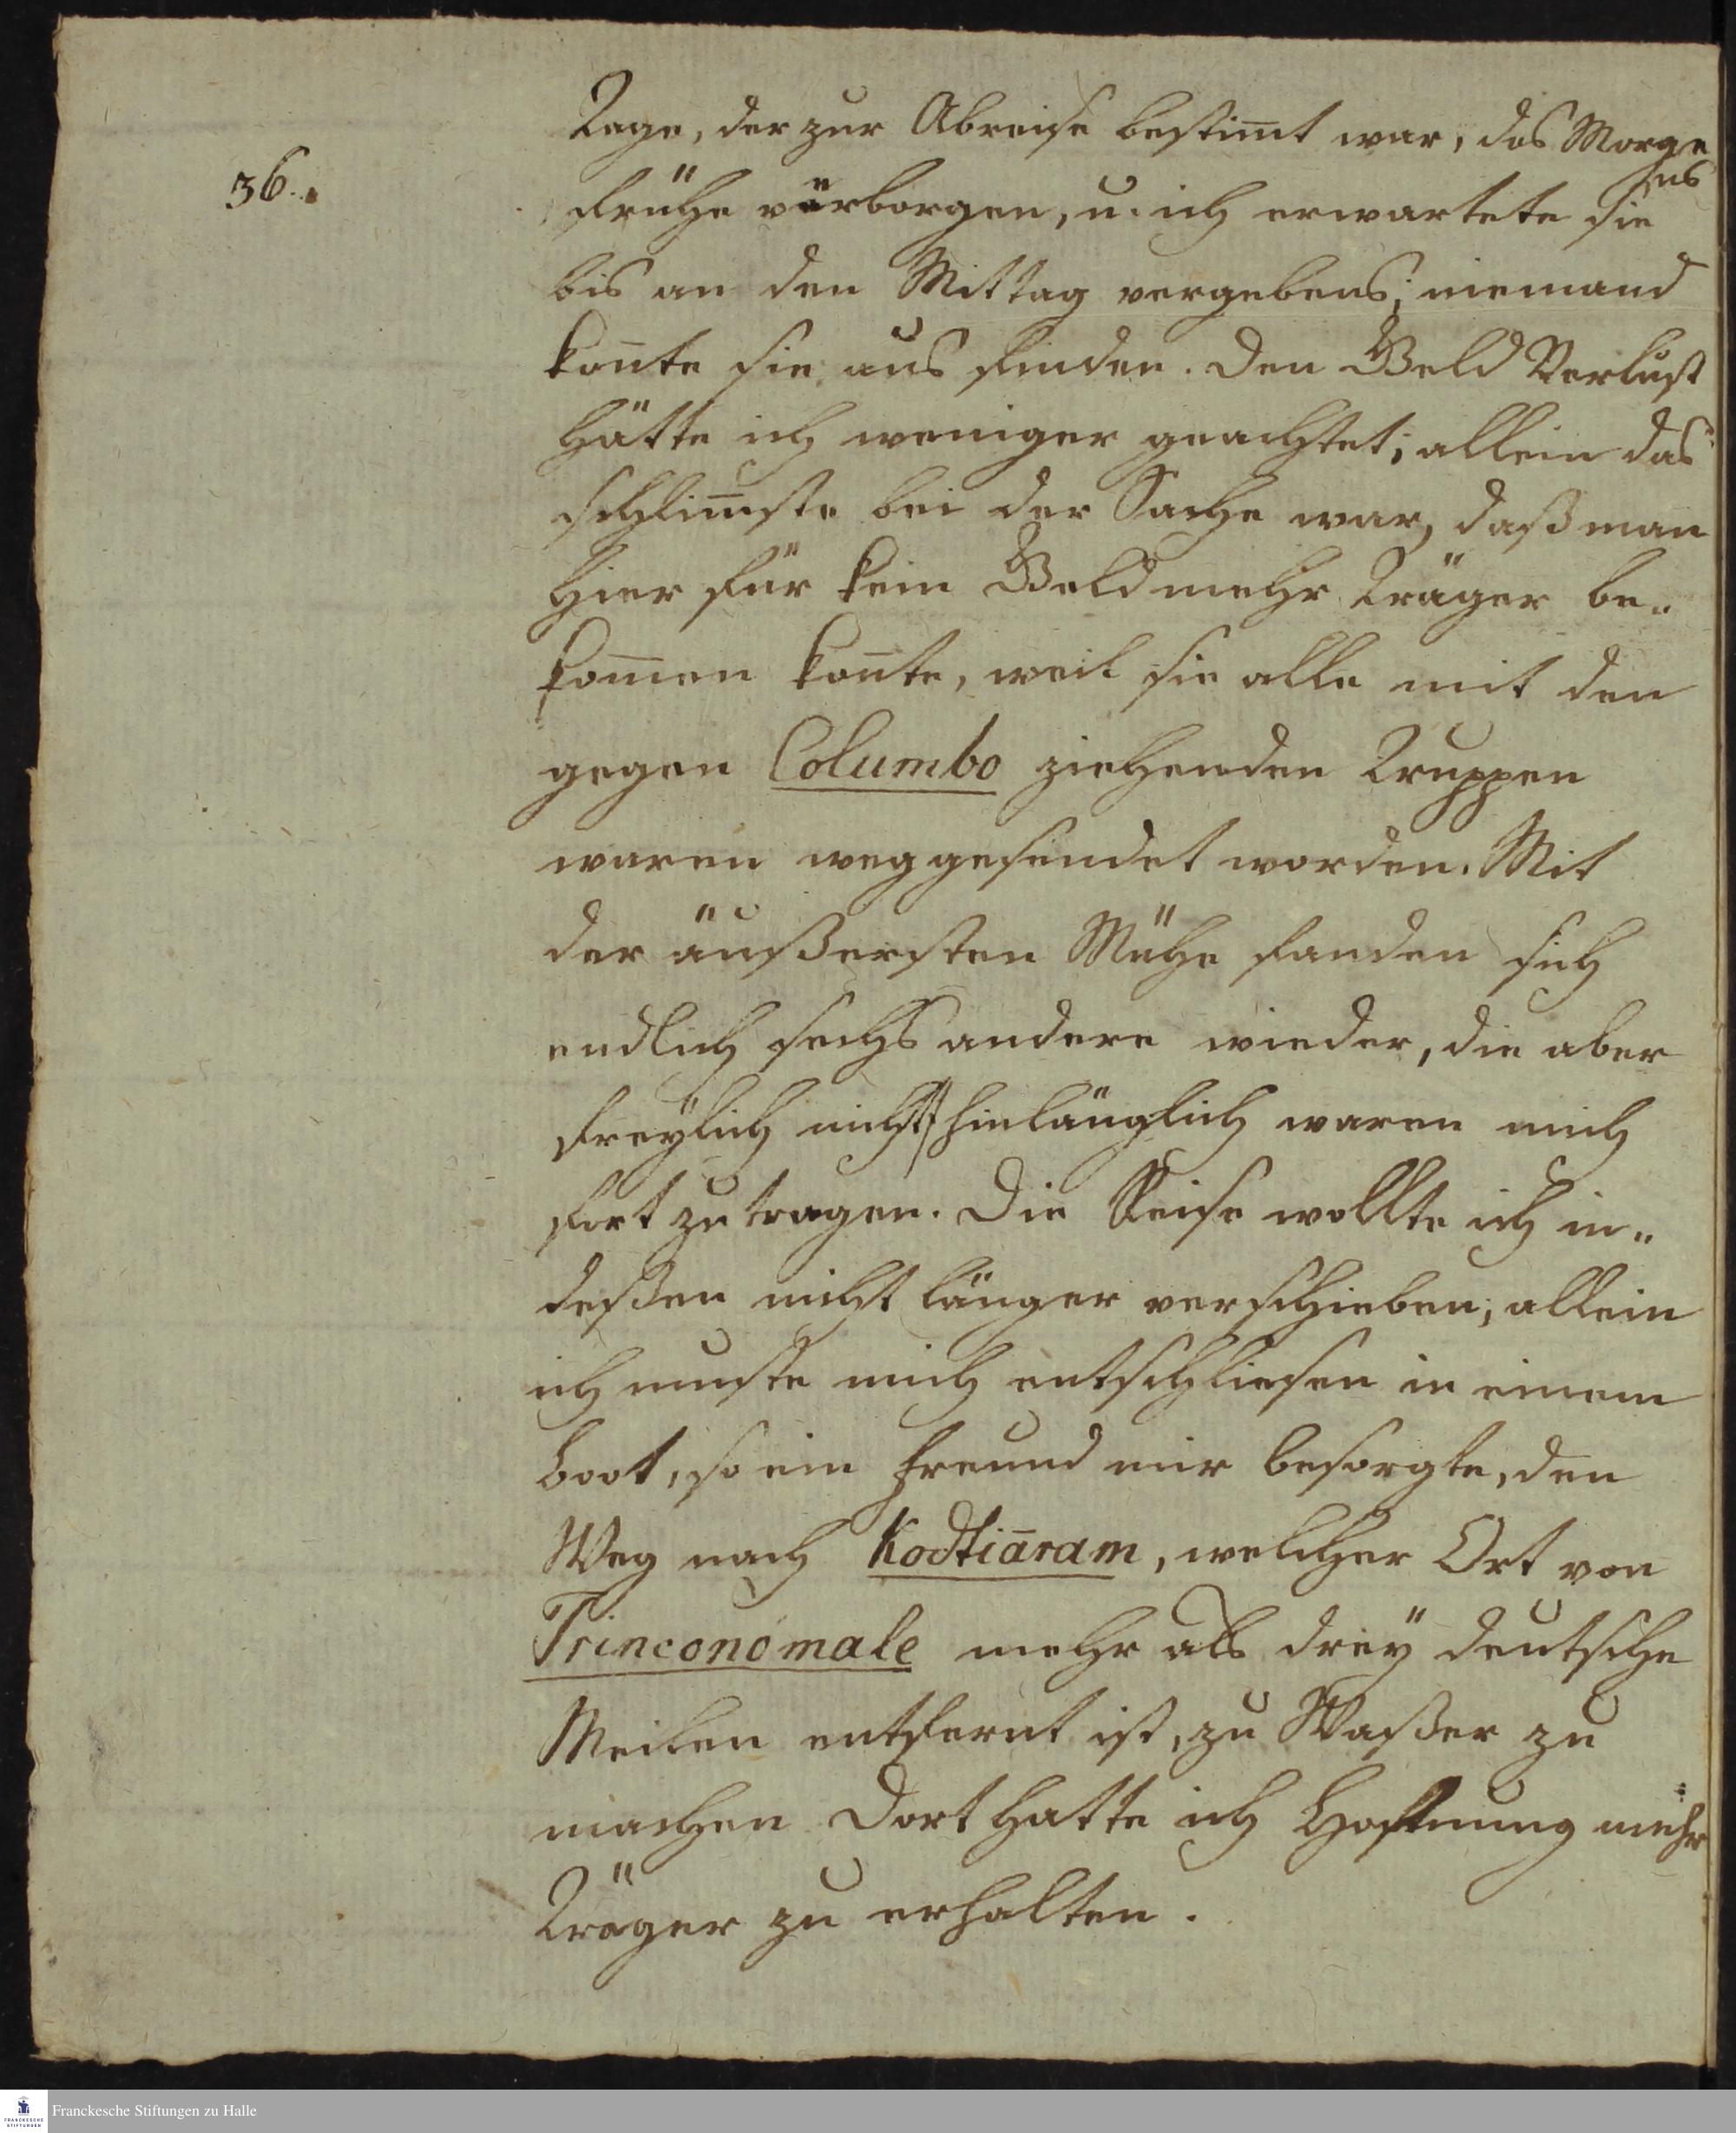 36.
Tage, der zur Abreise bestim̄t war, des Morge
ns
frühe verborgen, u. ich erwartete sie
bis an den Mittag vergebens; niemand
kon̄te sie aus finden. Den Geld Verlust
hätte ich weniger geachtet; allein das
schlim̄ste bei der Sache war, daß man
hier für kein Geld mehr Träger be„
kom̄en kon̄te, weil sie alle mit den
gegen Columbo ziehenden Truppen
waren weggesendet worden. Mit
der äußersten Mühe fanden sich
endlich sechs andere wieder, die aber
freÿlich nicht hinlänglich waren mich
fort zu tragen. Die Reise wollte ich in„
deßen nicht länger verschieben; allein
ich muste mich entschliesen in einem
Boot, so ein Freund mir besorgte, den
Weg nach Kodtiāram, welcher Ort von
Trinconomale mehr als dreÿ deutsche
Meilen entfernt ist, zu Waßer zu
machen Dort hatte ich Hofnung mehr
Träger zu erhalten.
Franckesche Stiftungen zu Halle
FRANCKESCHE
STIFTUNGEN